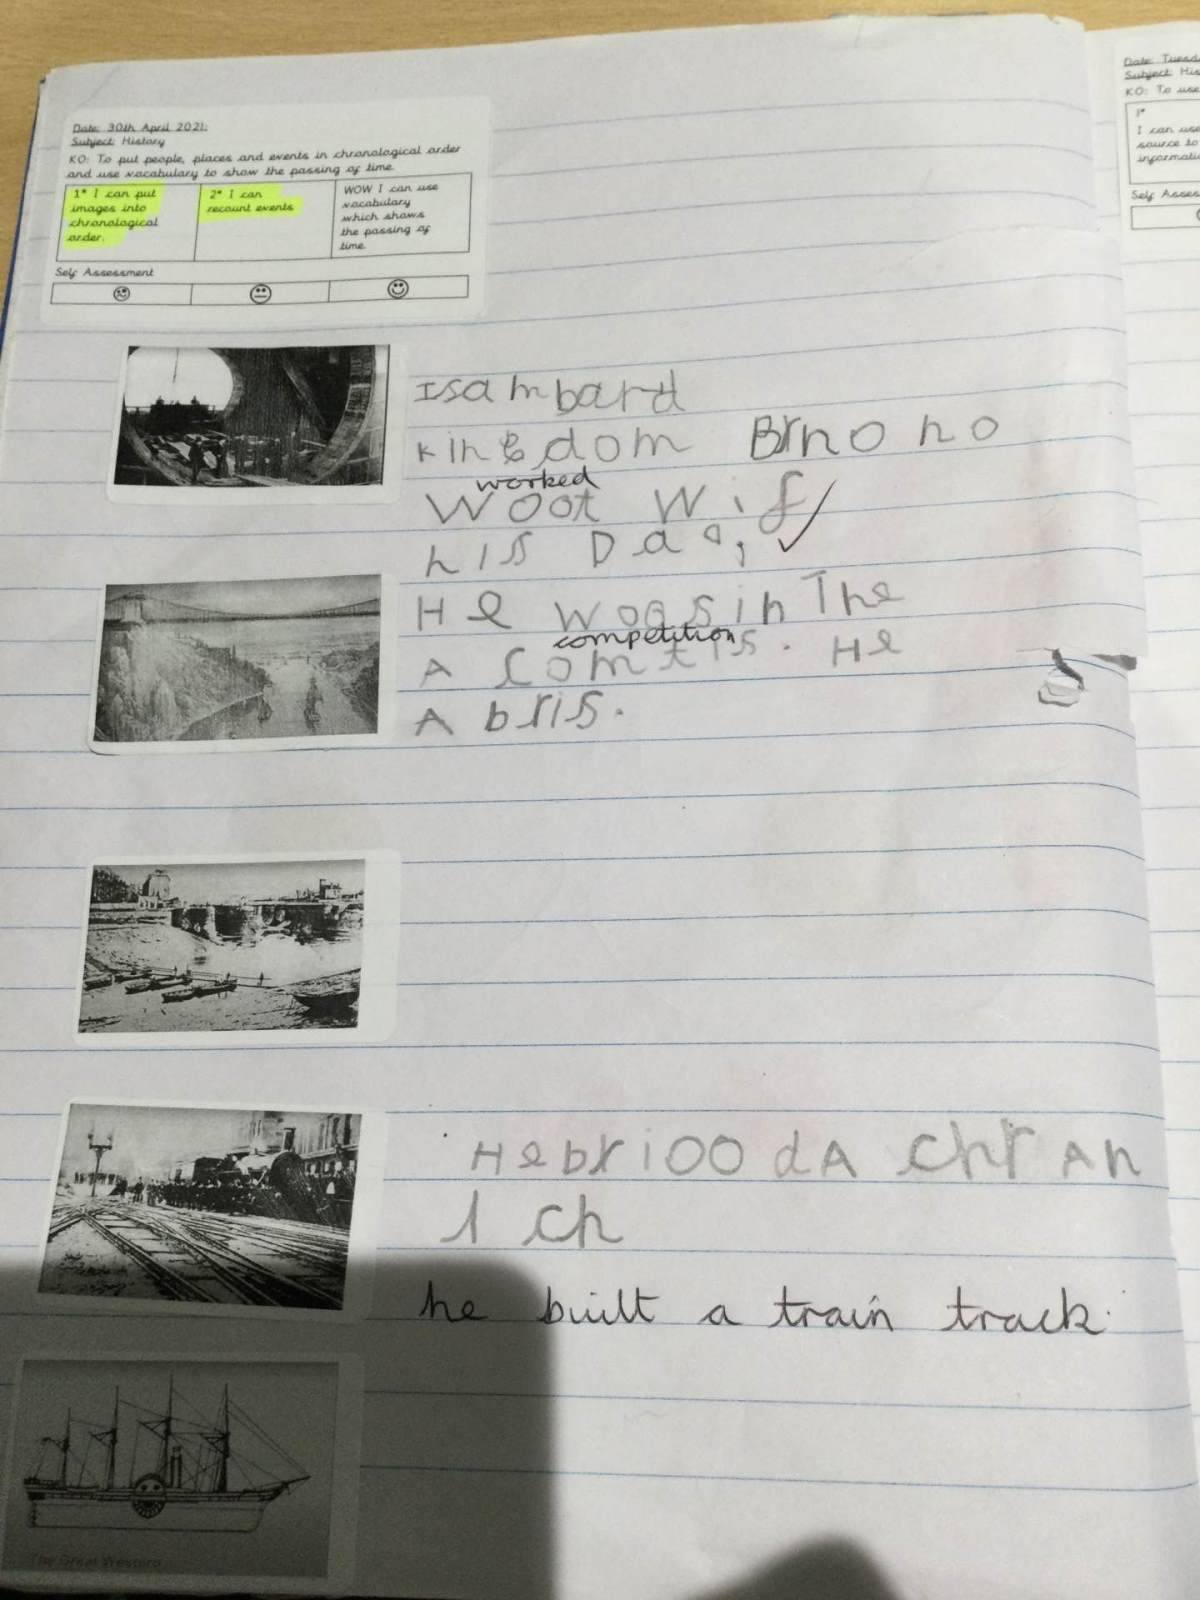 Date: 30th April 2021:
Subject: History
KO: To put people, places and events in chronological order
and use vocabulary to show the passing of time.
1* I can put
images into
chronological
order.
2* I can
recount events
WOW I can use
vocabulary
which shows
the passing of
time.
Self Assessment
Isambard
kingdom Brnono
worked
Woot wif
his Dad
He woos in The
competition
A Comtis. He
A bris.
HebrioodA chrAn
1 ch
he built a train track.
The Great Western
Date: Tuesd
Subject: His
KO: To use
1*
I can use
source to
informati
Self Assess